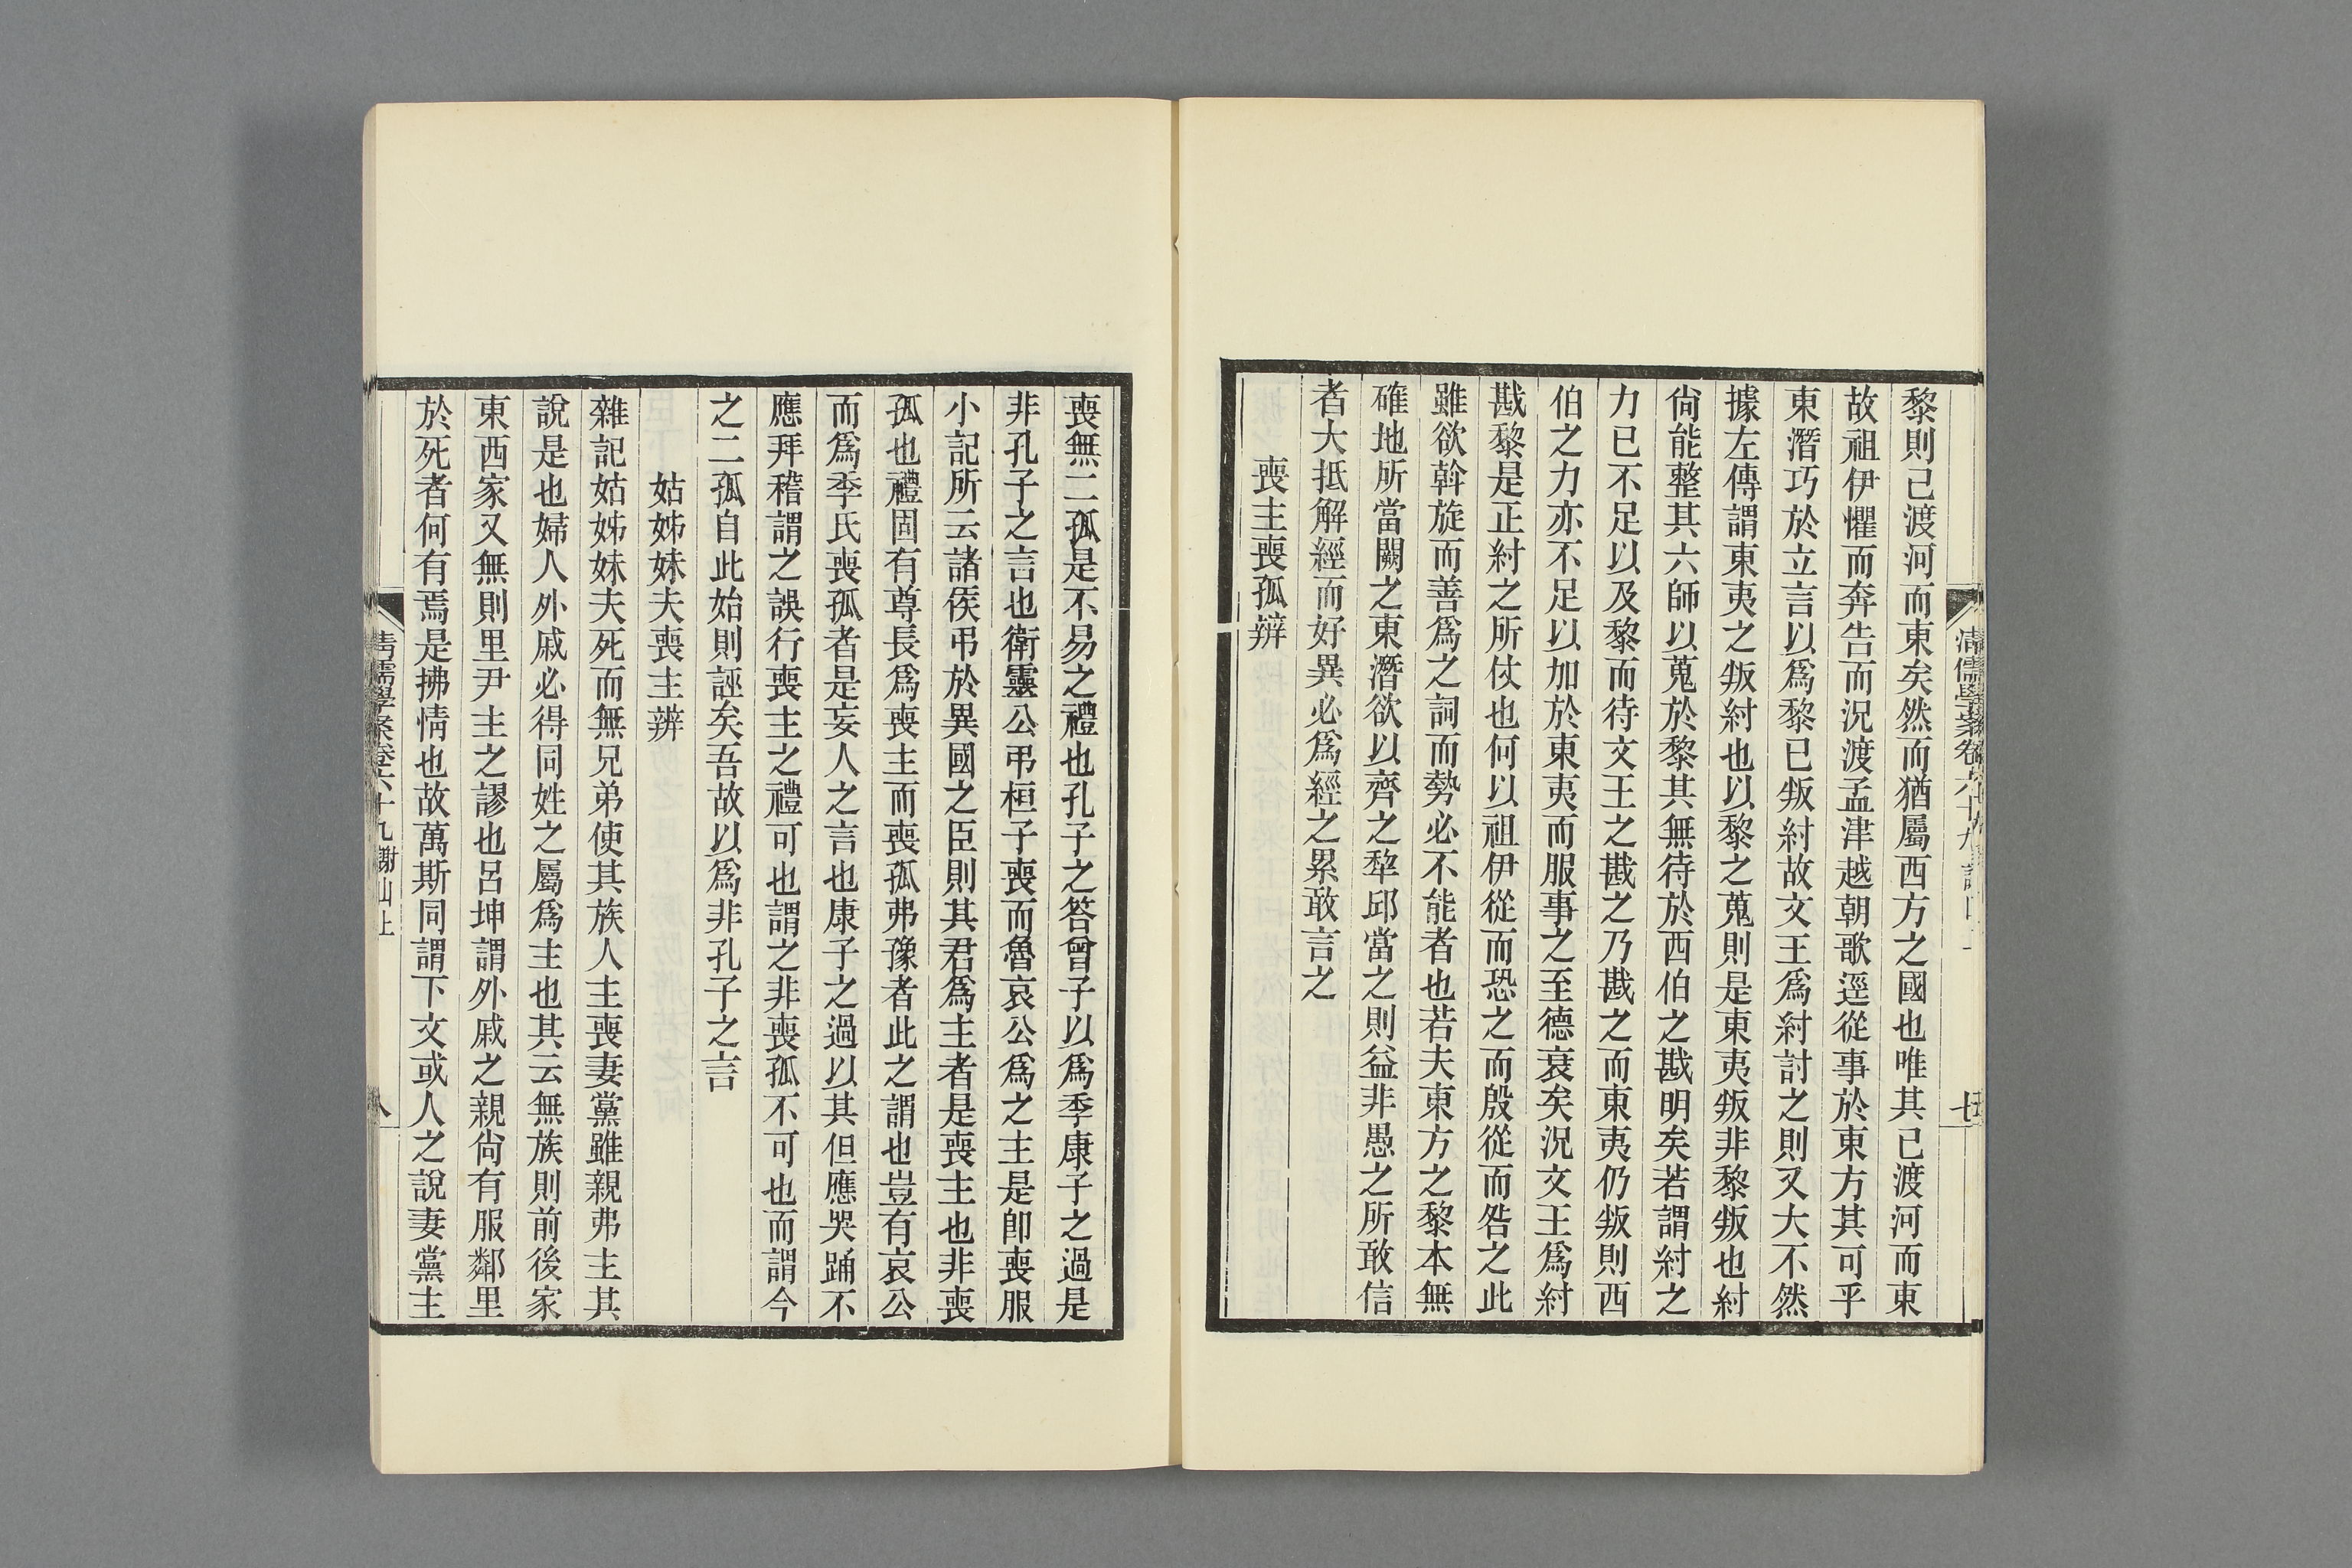 黎則已渡河而東矣然而猶屬西方之國也唯其已渡河而東
故祖伊懼而奔告而況渡孟津越朝歌逕從事於東方其可乎
東潛巧於立言以爲黎已叛紂故文王爲紂討之則又大不然
據左傳謂東夷之叛紂也以黎之蒐則是東夷叛非黎叛也紂
尙能整其六師以蒐於黎其無待於西伯之戡明矣若謂紂之
力已不足以及黎而待文王之戡之乃戡之而東夷仍叛則西
伯之力亦不足以加於東夷而服事之至德衰矣況文王爲紂
戡黎是正紂之所仗也何以祖伊從而恐之而殷從而咎之此
雖欲斡旋而善爲之詞而勢必不能者也若夫東方之黎本無
確地所當闕之東潛欲以齊之犂邱當之則益非愚之所敢信
者大抵解經而好異必爲經之累敢言之
喪主喪孤辨
喪無二孤是不易之禮也孔子之答曾子以爲季康子之過是
非孔子之言也衛靈公弔桓子喪而魯哀公爲之主是卽喪服
小記所云諸侯弔於異國之臣則其君爲主者是喪主也非喪
孤也禮固有尊長爲喪主而喪孤弗豫者此之謂也豈有哀公
而爲季氏喪孤者是妄人之言也康子之過以其但應哭踊不
應拜稽謂之誤行喪主之禮可也謂之非喪孤不可也而謂今
之二孤自此始則誣矣吾故以爲非孔子之言
姑姊妹夫喪主辨
雜記姑姊妹夫死而無兄弟使其族人主喪妻黨雖親弗主其
說是也婦人外戚必得同姓之屬爲主也其云無族則前後家
東西家又無則里尹主之謬也呂坤謂外戚之親尙有服鄰里
於死者何有焉是拂情也故萬斯同謂下文或人之說妻黨主
清儒學案卷六十九謝山上
八